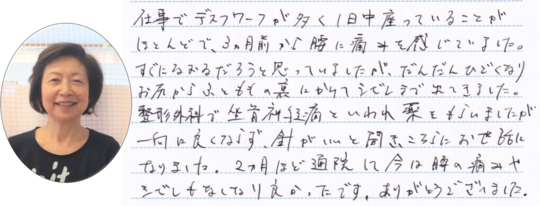 仕事でデスクワークが多く1日中座っていることが
ほとんどで、3ヵ月前から腰に痛みを感じていました。
すぐになおるだろうと思っていましたが、だんだんひどくなり
お尻からふとももの裏にかけてシビレまで出てきました。
整形外科で坐骨神経痛といわれ薬をもらいましたが
一向に良くならず、針がいいと聞きこちらにお世話に
なりました。2ヵ月ほど通院して今は腰の痛みや
シビレもなくなり良かったです。ありがとうございました。